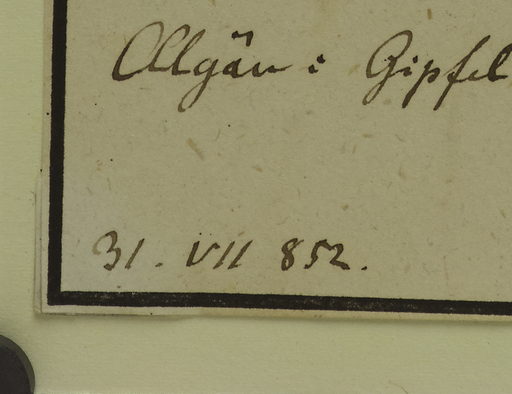 Allgäu : Gipfel
31. VII 852.